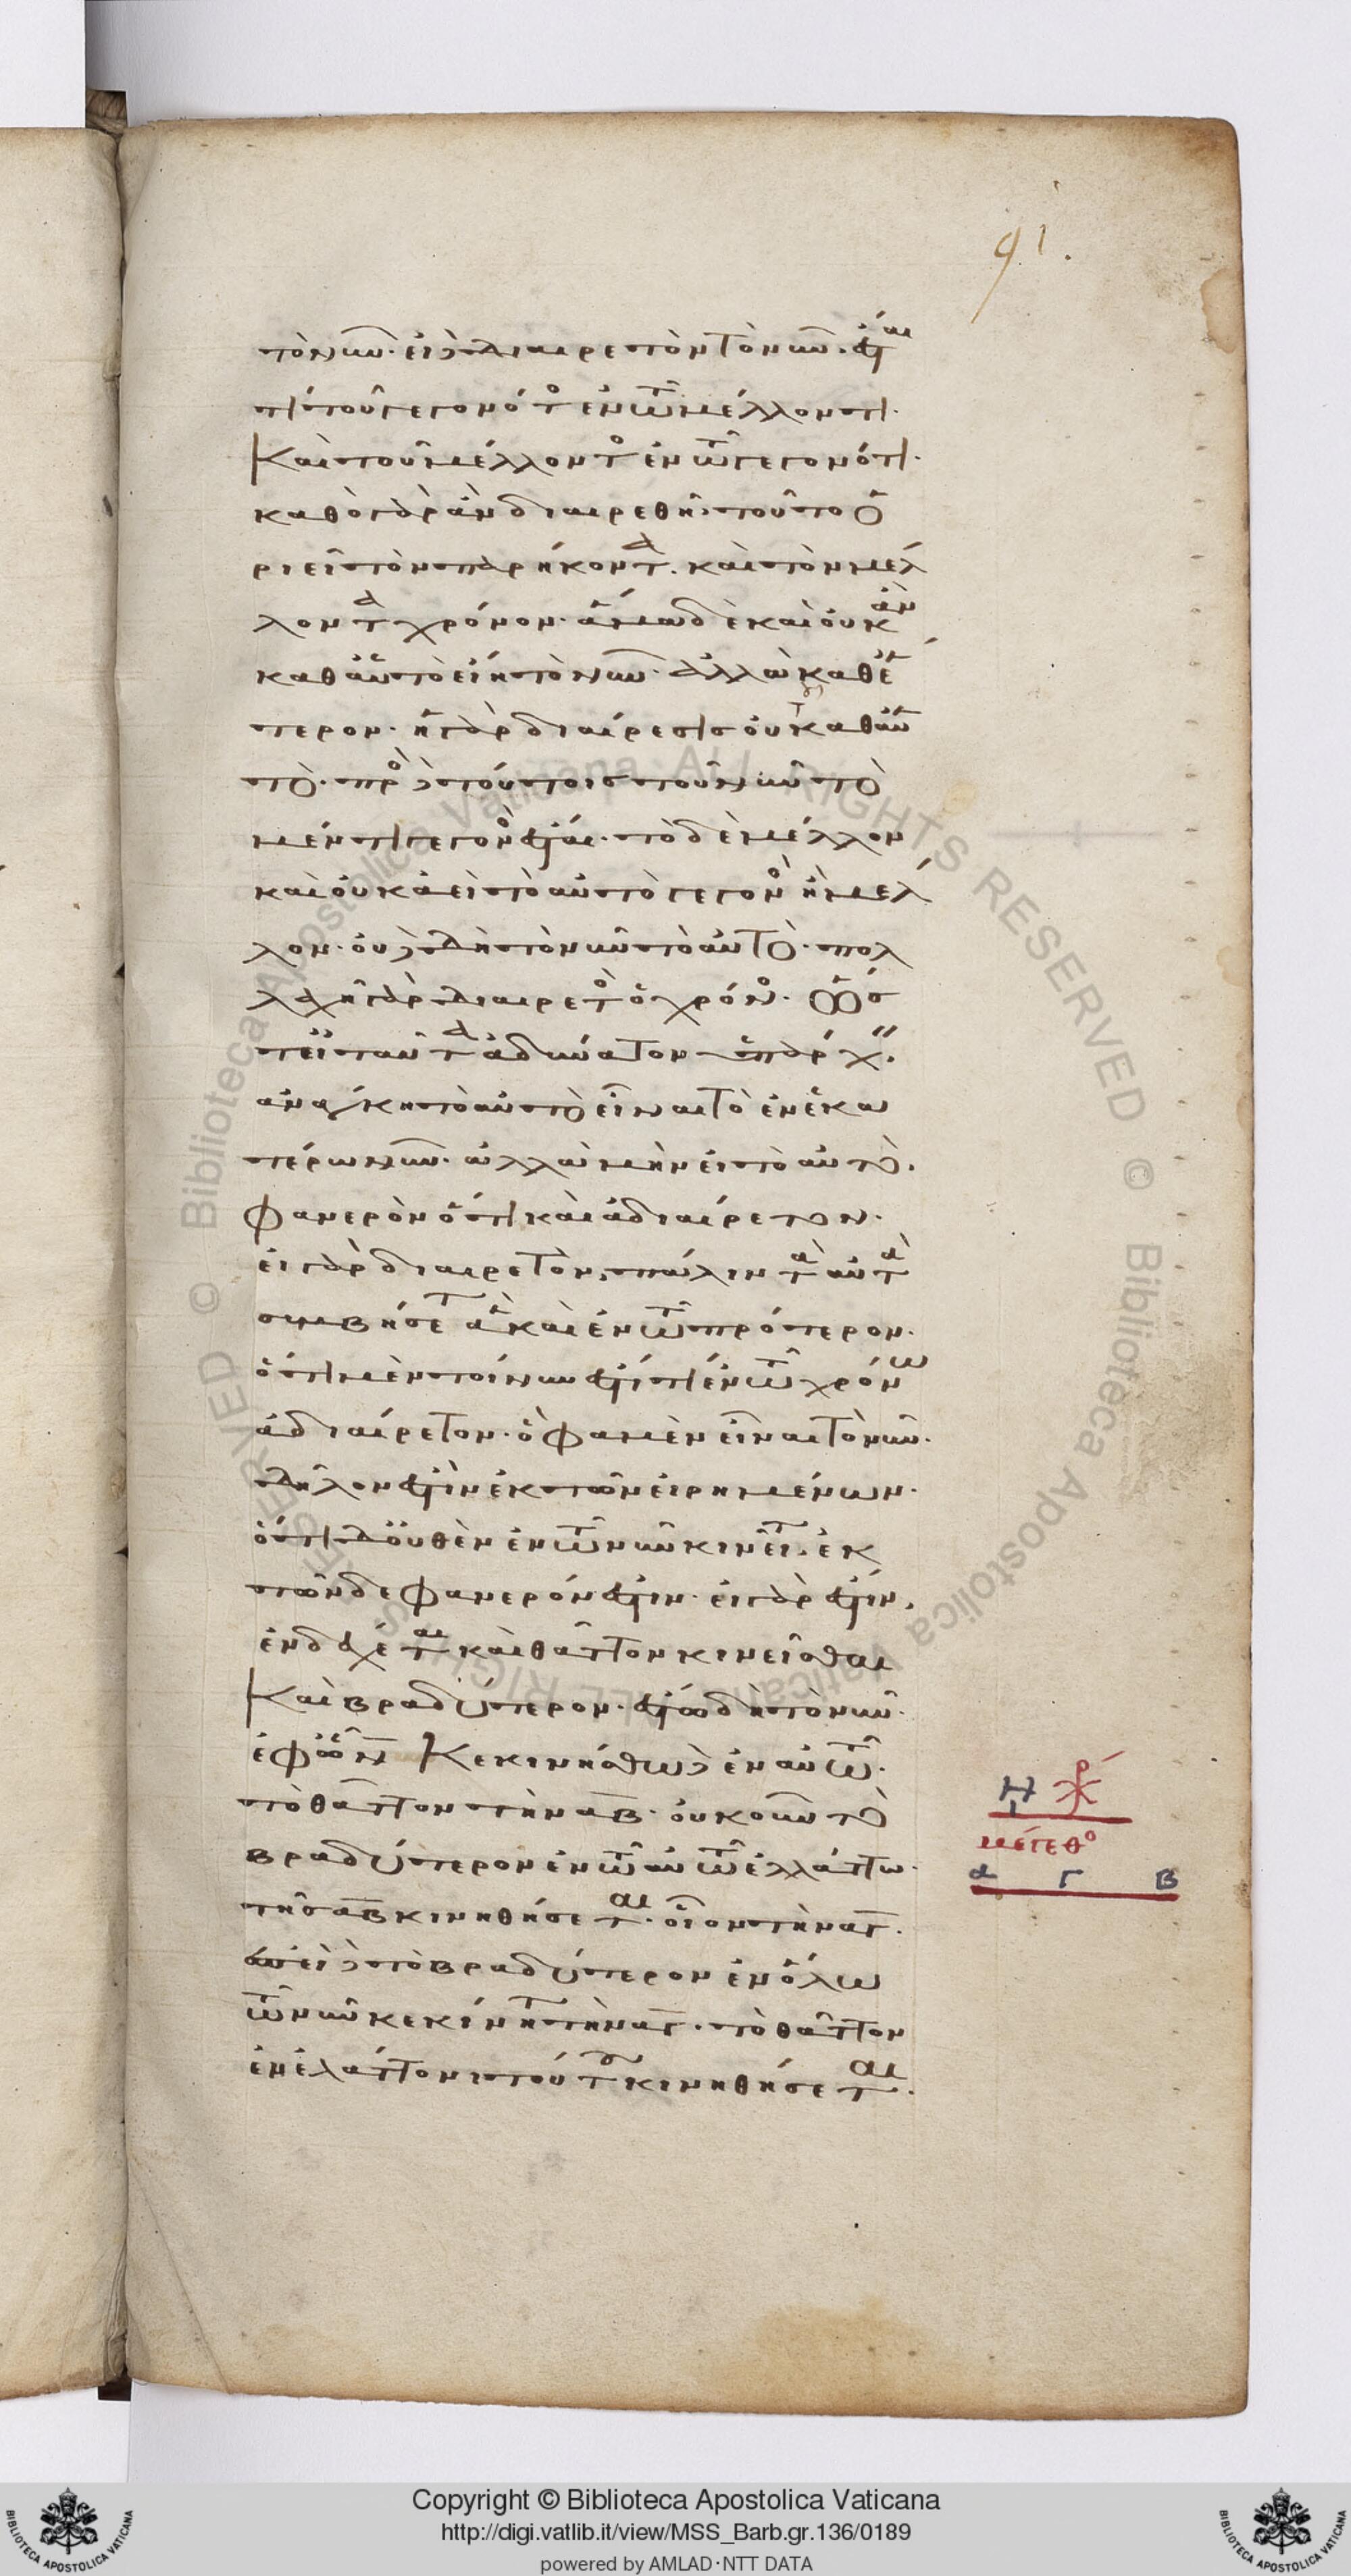 91.
τὸ νῦν. εἰ δὲ διαιρετὸν τὸ νῦν. ἔσται
τι τοῦ γεγονότος ἐν τῶ μέλλοντι.
καὶ τοῦ μέλλοντος ἐν τῶ γεγονότι.
καθὸ γὰρ ἂν διαιρεθῆ. τοῦτο ὁ
ριεῖ τὸν παρήκοντα. καὶ τὸν μέλ
λοντα χρόνον. ἅμα δὲ καὶ οὐκ ἂν
καθ αὑτὸ εἴη τὸ νῦν. ἀλλὰ καθ ἕ
τερον. ἡ γὰρ διαίρεσις οὐ καθ αὑ
τό. πρὸς δὲ τούτοις τοῦ νῦν τὸ
μέν τι γεγονὸς ἔσται. τὸ δὲ μέλλον
καὶ οὐκ ἀεὶ τὸ αὐτὸ γεγονὸς ἢ μέλ
λον. οὐδὲ δὴ τὸ νῦν τὸ αὐτό. πολ
λαχῆ γὰρ διαιρετὸς ὁ χρόνος. ὥσ
τ εἰ ταῦτα ἀδύνατον ὑπάρχειν.
ἀνάγκη τὸ αὐτὸ εἶναι τὸ ἐν ἑκα
τέρω νῦν. ἀλλὰ μὴν εἰ τὸ αὐτό.
φανερὸν ὅτι καὶ ἀδιαίρετον.
εἰ γὰρ διαιρετὸν, πάλιν τὰ αὐτὰ
συμβήσεται ἃ καὶ ἐν τῶ πρότερον.
ὅτι μὲν τοίνυν ἔστι τι ἐν τῶ χρόνω
ἀδιαίρετον. ὅ φαμεν εἶναι τὸ νῦν.
δῆλόν ἐστιν ἐκ τῶν εἰρημένων.
ὅτι δ οὐθὲν ἐν τῶ νῦν κινεῖται. ἐκ
τῶνδε φανερόν ἐστιν. εἰ γὰρ ἔστιν,
ἐνδέχεται καὶ θᾶττον κινεῖσθαι
καὶ βραδύτερον. ἔστω δὴ τὸ νῦν.
ἐφ ὧ ν κεκινήσθω δὲ ἐν αὐτῶ.
τὸ θᾶττον τὴν αβ. οὐκοῦν τὸ
βραδύτερον ἐν τῶ αὐτῶ ἐλλάττω.
τῆς αβ κινηθήσεται. οἷον τὴν αγ.
ἐπεὶ δὲ τὸ βραδύτερον ἐν ὅλω
τῶ νῦν κεκίνηται τὴν αγ. τὸ θᾶττον
ἐν ἐλάττονι τούτου κινηθήσεται.
μέγεθο
α γ β